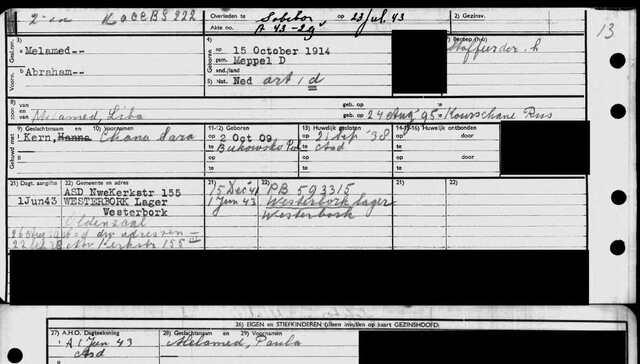 Overleden te Sobibor op 23 jul. 43
Akte no. A 43-29
2) Gezinsv.
13
3)
van
Melamed--
voorn.
Abraham--
4)
op 15 October 1914
gem. Meppel D
prov./land
5) Nat. Ned art 1 d
6) Beroep (h-o)
Stoffeerder h
7)
8) van en van
Melamed, Liba
geb. op 24 Aug '95 - Kourschane Rus
geb. op
9) Geslachtsnaam en 10) Voornamen
11-12) Geboren
13) Huwelijk gesloten
14-15-16) Huwelijk ontbonden
Gehuwd met
Kern, Hanna Chana Sara
op 2 Oct 09
te Bukowsko Pol
op 21 Sep '38
te Asd
op
te
door
op
te
door
21) Dagt. aangifte
22) Gemeente en adres
21)
22)
ASD Nwekerkstr 155
15 Dec 41
PB 593315
1Jun43
WESTERBORK Lager
Westerbork
1 Jun 43
Westerbork lager
Westerbork
Oldenzaal
adressen
Nw Kerkstr 155 III
26) EIGEN en STIEFKINDEREN (alleen invullen op kaart GEZINSHOOFD)
27) A.H.O. Dagteekening
28) Geslachtsnaam en 29) Voornamen
A 1 Jun 43
Asd
Melamed, Paula